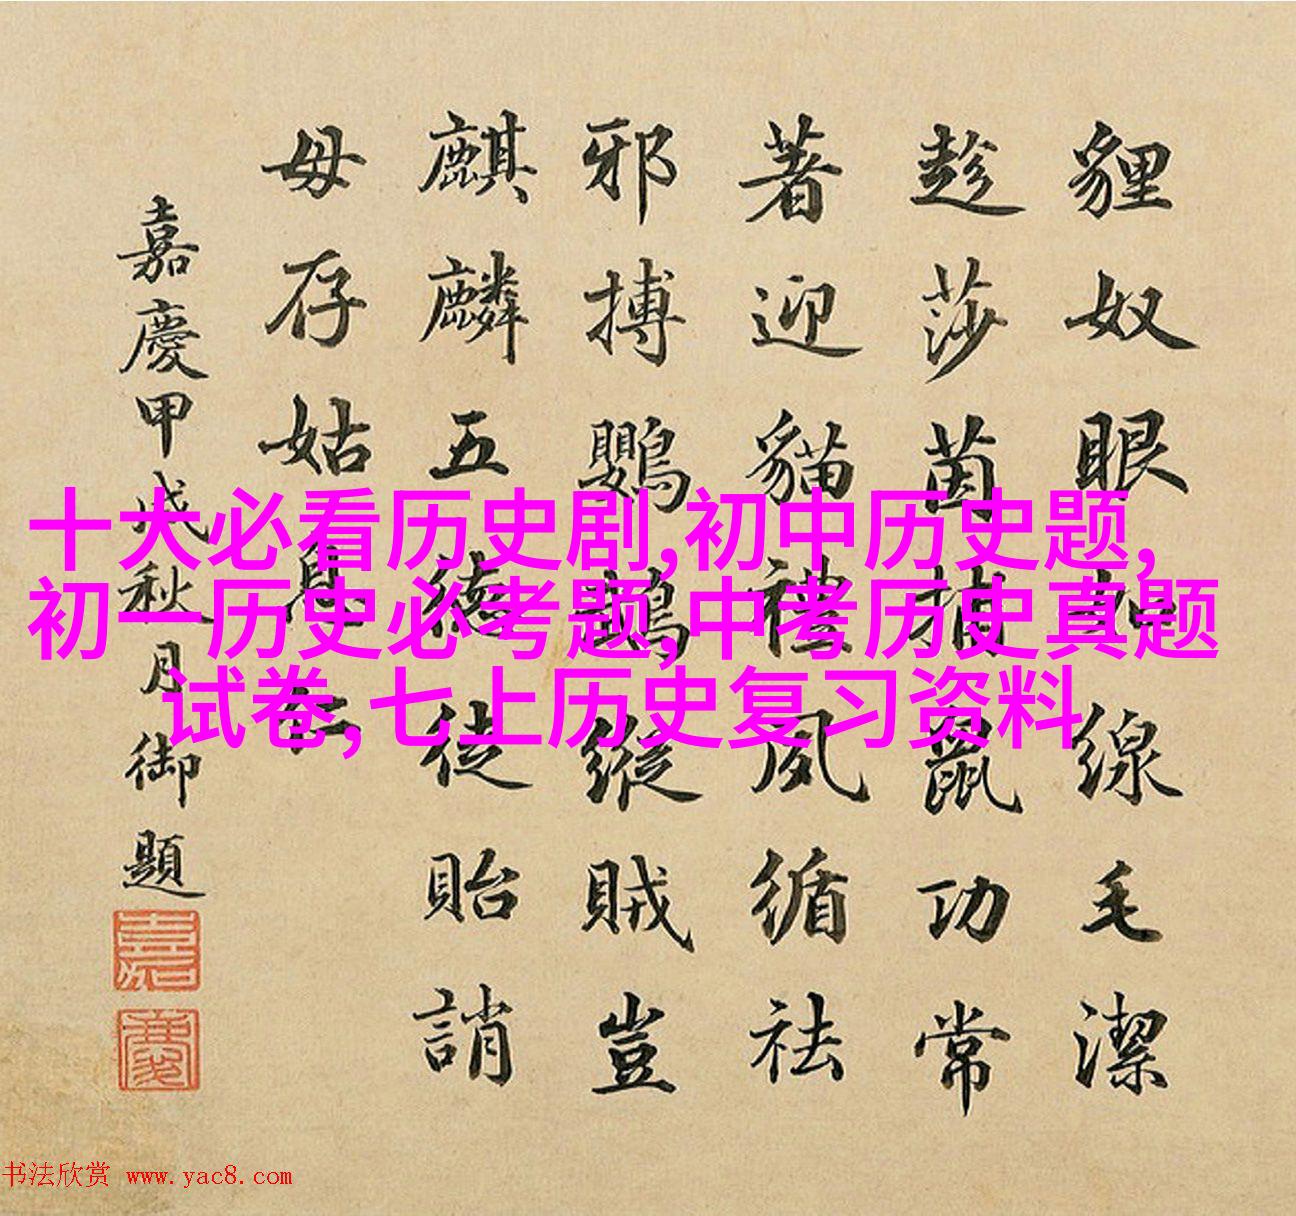 貍奴眼如線毛潔
趁莎茵捕鼠功常
著迎貓禮夙循祛
邪搏鸚鵡縱賊豈
麒麟五德徒貽誚
毋存姑息仁
嘉慶甲戌秋月御題
嘉
慶
十大必看历史剧,初中历史题,
初一历史必考题,中考历史真题
试卷,七上历史复习资料
书法欣赏 www.yac8.com